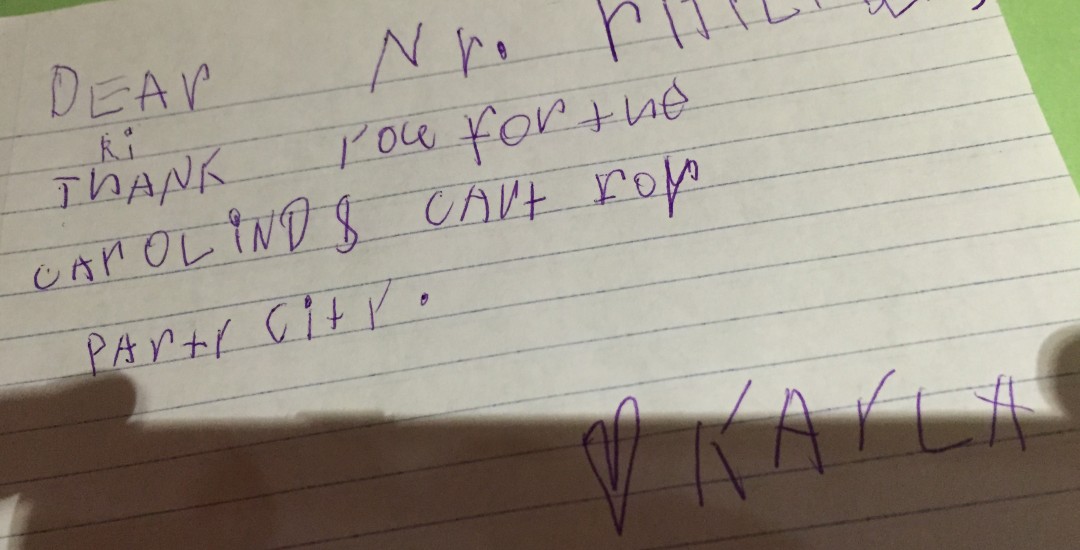 DEAr Nr.
Ki
THANK rou for the
CArOLiND$ CArt ror
PArtr Citr.
KArLA